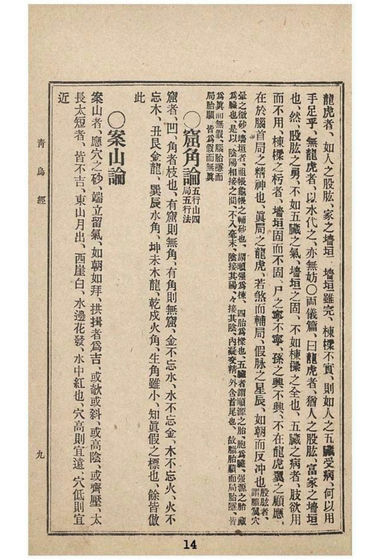 龍虎者、如人之股肱、家之墻垣、墻垣雖完、棟樑不實、則如人之五臟受病、何以用
手足乎、無龍虎者、以水代之、亦無妨〇兩儀篇曰龍虎者、猶人之股肱、富家之墻垣
也、然、股肱之勇、不如五臟之氣、墻垣之固、不如棟樑之全也、五臟之病者、肢欲用
而不用、棟樑之朽者、墻垣固而不固、尸之寧不寧、孫之興不興、不在龍虎翼之顧應、
在於腦首局之精神也、眞局之龍虎、若煞而輔局、假脉之星辰、如朝而反冲也
〇窟角論 五行山四局五行法
窟者、凹、角者枝也、有窟則無角、有角則無窟、金不忘水、水不忘金、木不忘火、火不
忘木、丑艮金龍、巽辰水角、坤未木龍、乾戌火角、生角雖小、知眞假之標也、餘皆倣
此
〇案山論
案山者、應穴之砂、端立留氣、如朝如拜、拱揖者爲吉、或欹或斜、或高陰、或齊壓、太
長太短者、皆不吉、東山月出、西崖白、水邊花發、水中紅也、穴高則宜遠、穴低則宜
近
靑烏經
九
14